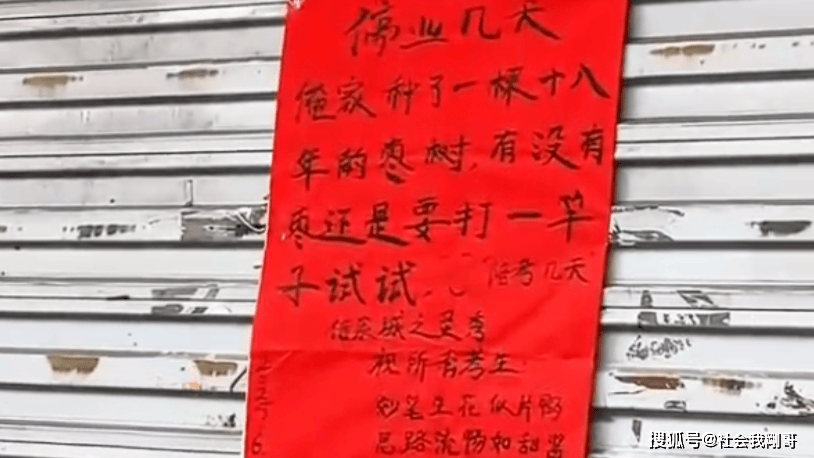 停业几天
俺家种了一棵十八
年的枣树，有没有
枣还是要打一竿
子试试． 陪考几天
借蔡城之灵秀
祝所有考生
妙笔生花似片鸭
思路流畅如甜酱
搜狐号@社会我刚哥